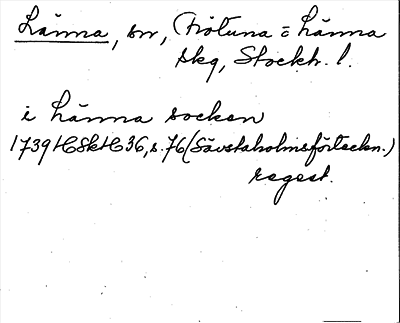 Länna, sn, Frötuna o Länna
skg, Stockh. l.
i Länna socken
1739 HSH 36, s. 76 (Sävstaholmsförteckn.)
regest.